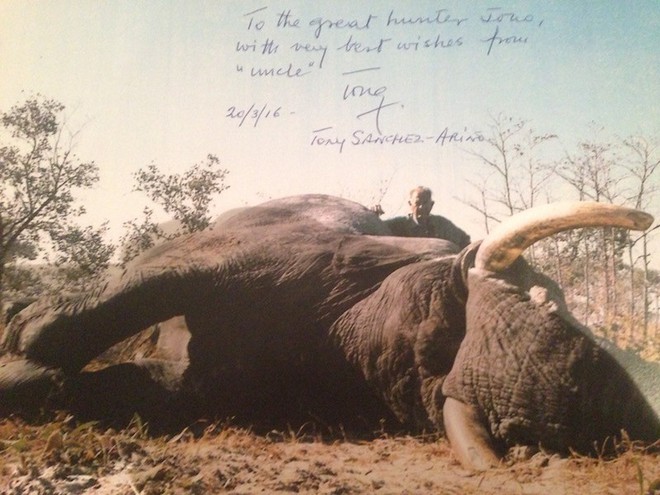 To the great hunter Jono,
with very best wishes from
"uncle"
Tony
20/3/16 -
TONY SANCHEZ-ARIÑO